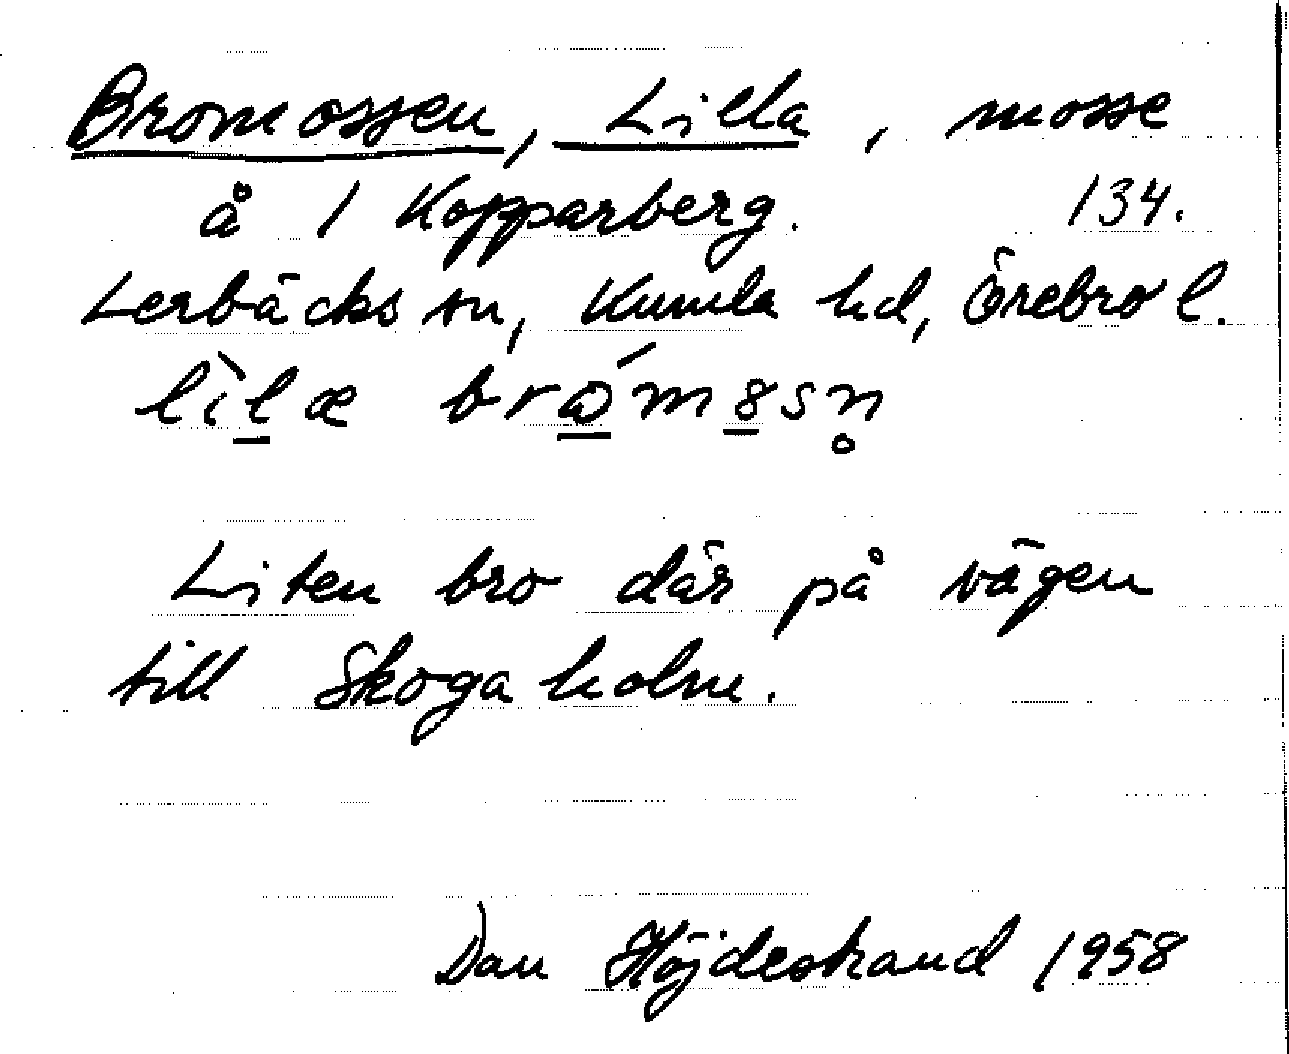 Bromossen, Lilla, mosse
å 1 Kopparberg. 134.
Lerbäcks sn, Kumla hd, Örebro l.
lìlæ brǿm8sn̥
Liten bro där på vägen
till Skogaholm.
Dan Höjdestrand 1958